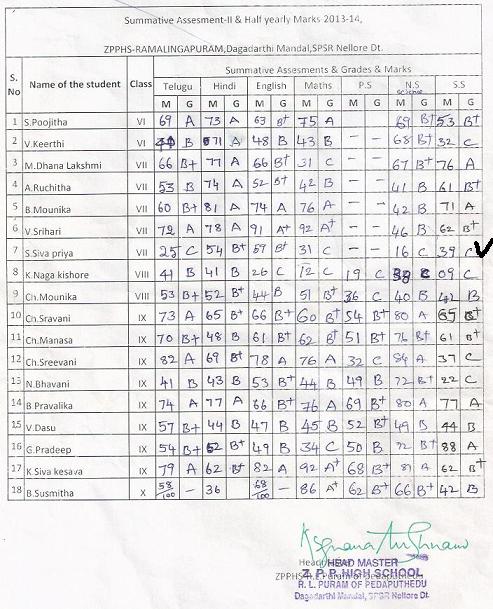 Summative Assesment-II & Half yearly Marks 2013-14,
ZPPHS-RAMALINGAPURAM,Dagadarthi Mandal,SPSR Nellore Dt.
S. No Name of the student Class Summative Assesments & Grades & Marks
Telugu Hindi English Maths P.S N.S Science S.S
M G M G M G M G M G M G M G
1 S.Poojitha VI 69 A 73 A 63 B+ 75 A 69 B+ 53 B+
2 V.Keerthi VI B 71 A 48 B 43 B - - 68 B+ 32 C
3 M.Dhana Lakshmi VII 66 B+ 77 A 66 B+ 31 C - - 67 B+ 76 A
4 A.Ruchitha VII 53 B 74 A 52 B+ 42 B - - 41 B 61 B+
5 B.Mounika VII 60 B+ 81 A 74 A 76 A - - 42 B 71 A
6 V.Srihari VII 72 A 78 A 91 A+ 92 A+ - - 46 B 62 B+
7 S.Siva priya VII 25 C 54 B+ 57 B+ 31 C 16 C 39 C
8 K.Naga kishore VIII 41 B 41 B 26 C 12 C 19 C C 09 C
9 Ch.Mounika VIII 53 B+ 52 B+ 44 B 51 B+ 36 C 40 B 42 B
10 Ch.Sravani IX 73 A 65 B+ 66 B+ 60 B+ 54 B+ 80 A 65 B+
11 Ch.Manasa IX 70 B+ 48 B 61 B+ 62 B+ 51 B+ 76 B+ 61 B+
12 Ch.Sreevani IX 82 A 69 B+ 78 A 76 A 32 C 84 A 37 C
13 N.Bhavani IX 41 B 43 B 53 B+ 44 B 49 B 72 B+ 22 C
14 B Pravalika IX 74 A 77 A 66 B+ 76 A 69 B+ 80 A 77 A
15 V.Dasu IX 57 B+ 44 B 47 B 45 B 52 B+ 49 B 44 B
16 G.Pradeep IX 54 B+ 52 B+ 49 B 34 C 50 B 72 B+ 88 A
17 K.Siva kesava IX 79 A 62 B+ 82 A 92 A+ 68 B+ 81 A 62 B+
18 B.Susmitha X 58/100 - 36 68/100 - 86 A+ 62 B+ 66 B+ 42 B
HEAD MASTER
Z. P. P. HIGH SCHOOL
R. L. PURAM OF PEDAPUTHEDU
Dagadarthi Mandal, SPSR Nellore Dt.